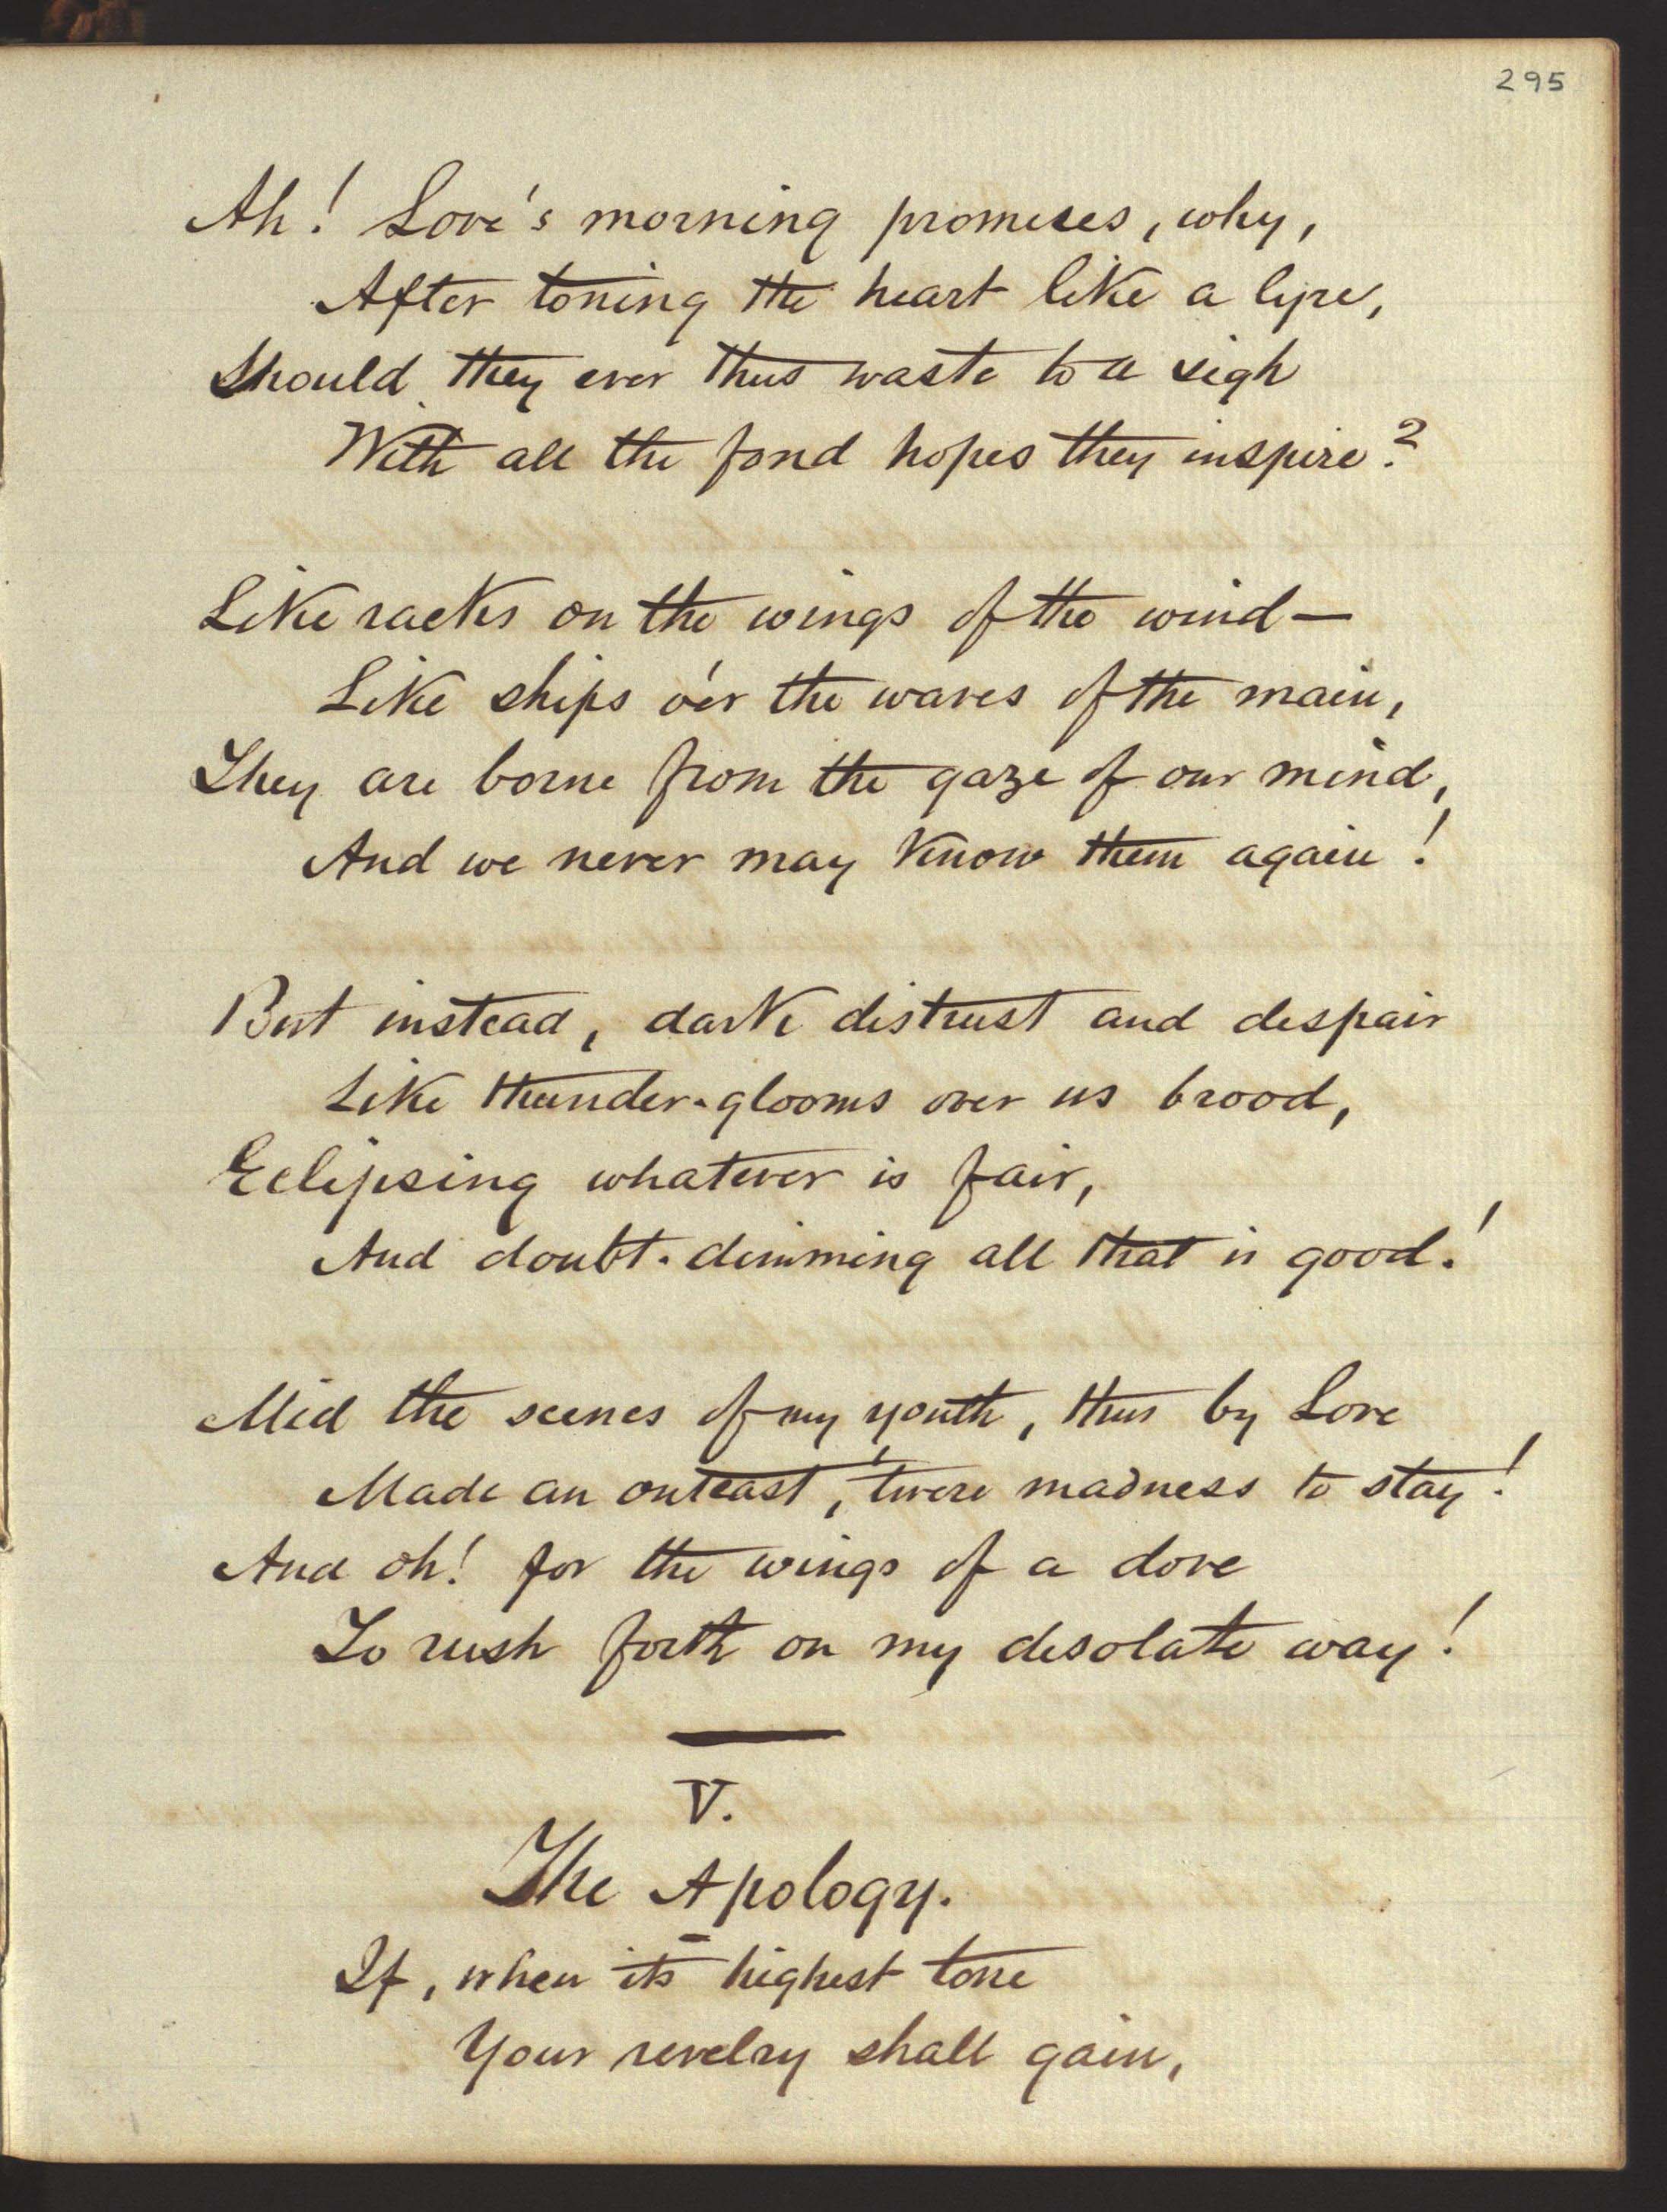 295
Ah! Love's morning promises, why,
After toning the heart like a lyre,
Should they ever thus waste to a sigh
With all the fond hopes they inspire?
Like racks on the wings of the wind—
Like ships o'er the waves of the main,
They are borne from the gaze of our mind,
And we never may know them again!
But instead, dark distrust and despair
Like thunder-glooms over us brood,
Eclipsing whatever is fair,
And doubt-dimming all that is good!
Mid the scenes of my youth, thus by Love
Made an outcast, 'twere madness to stay!
And oh! for the wings of a dove
To rush forth on my desolate way!
V.
The Apology.
If, when its highest tone
Your revelry shall gain,